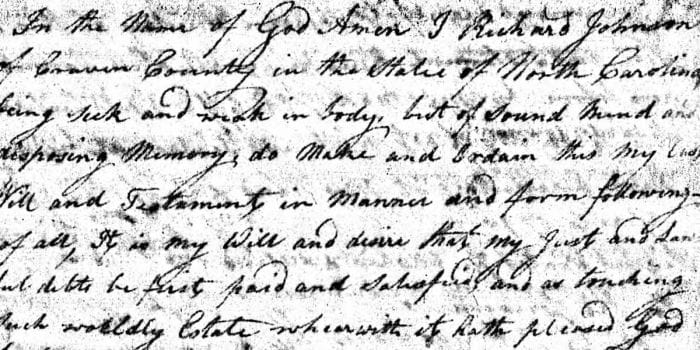 In the Name of God Amen I Richard Johnson
of Craven County in the State of North Carolina
being sick and weak in body, but of Sound Mind and
disposing Memory, do Make and Ordain this my last
Will and Testament, in Manner and form following-
of all, It is my Will and desire that my Just and Law-
ful debts be first paid and Satisfied, and as touching
Such worldly Estate whearwith it hath pleased God